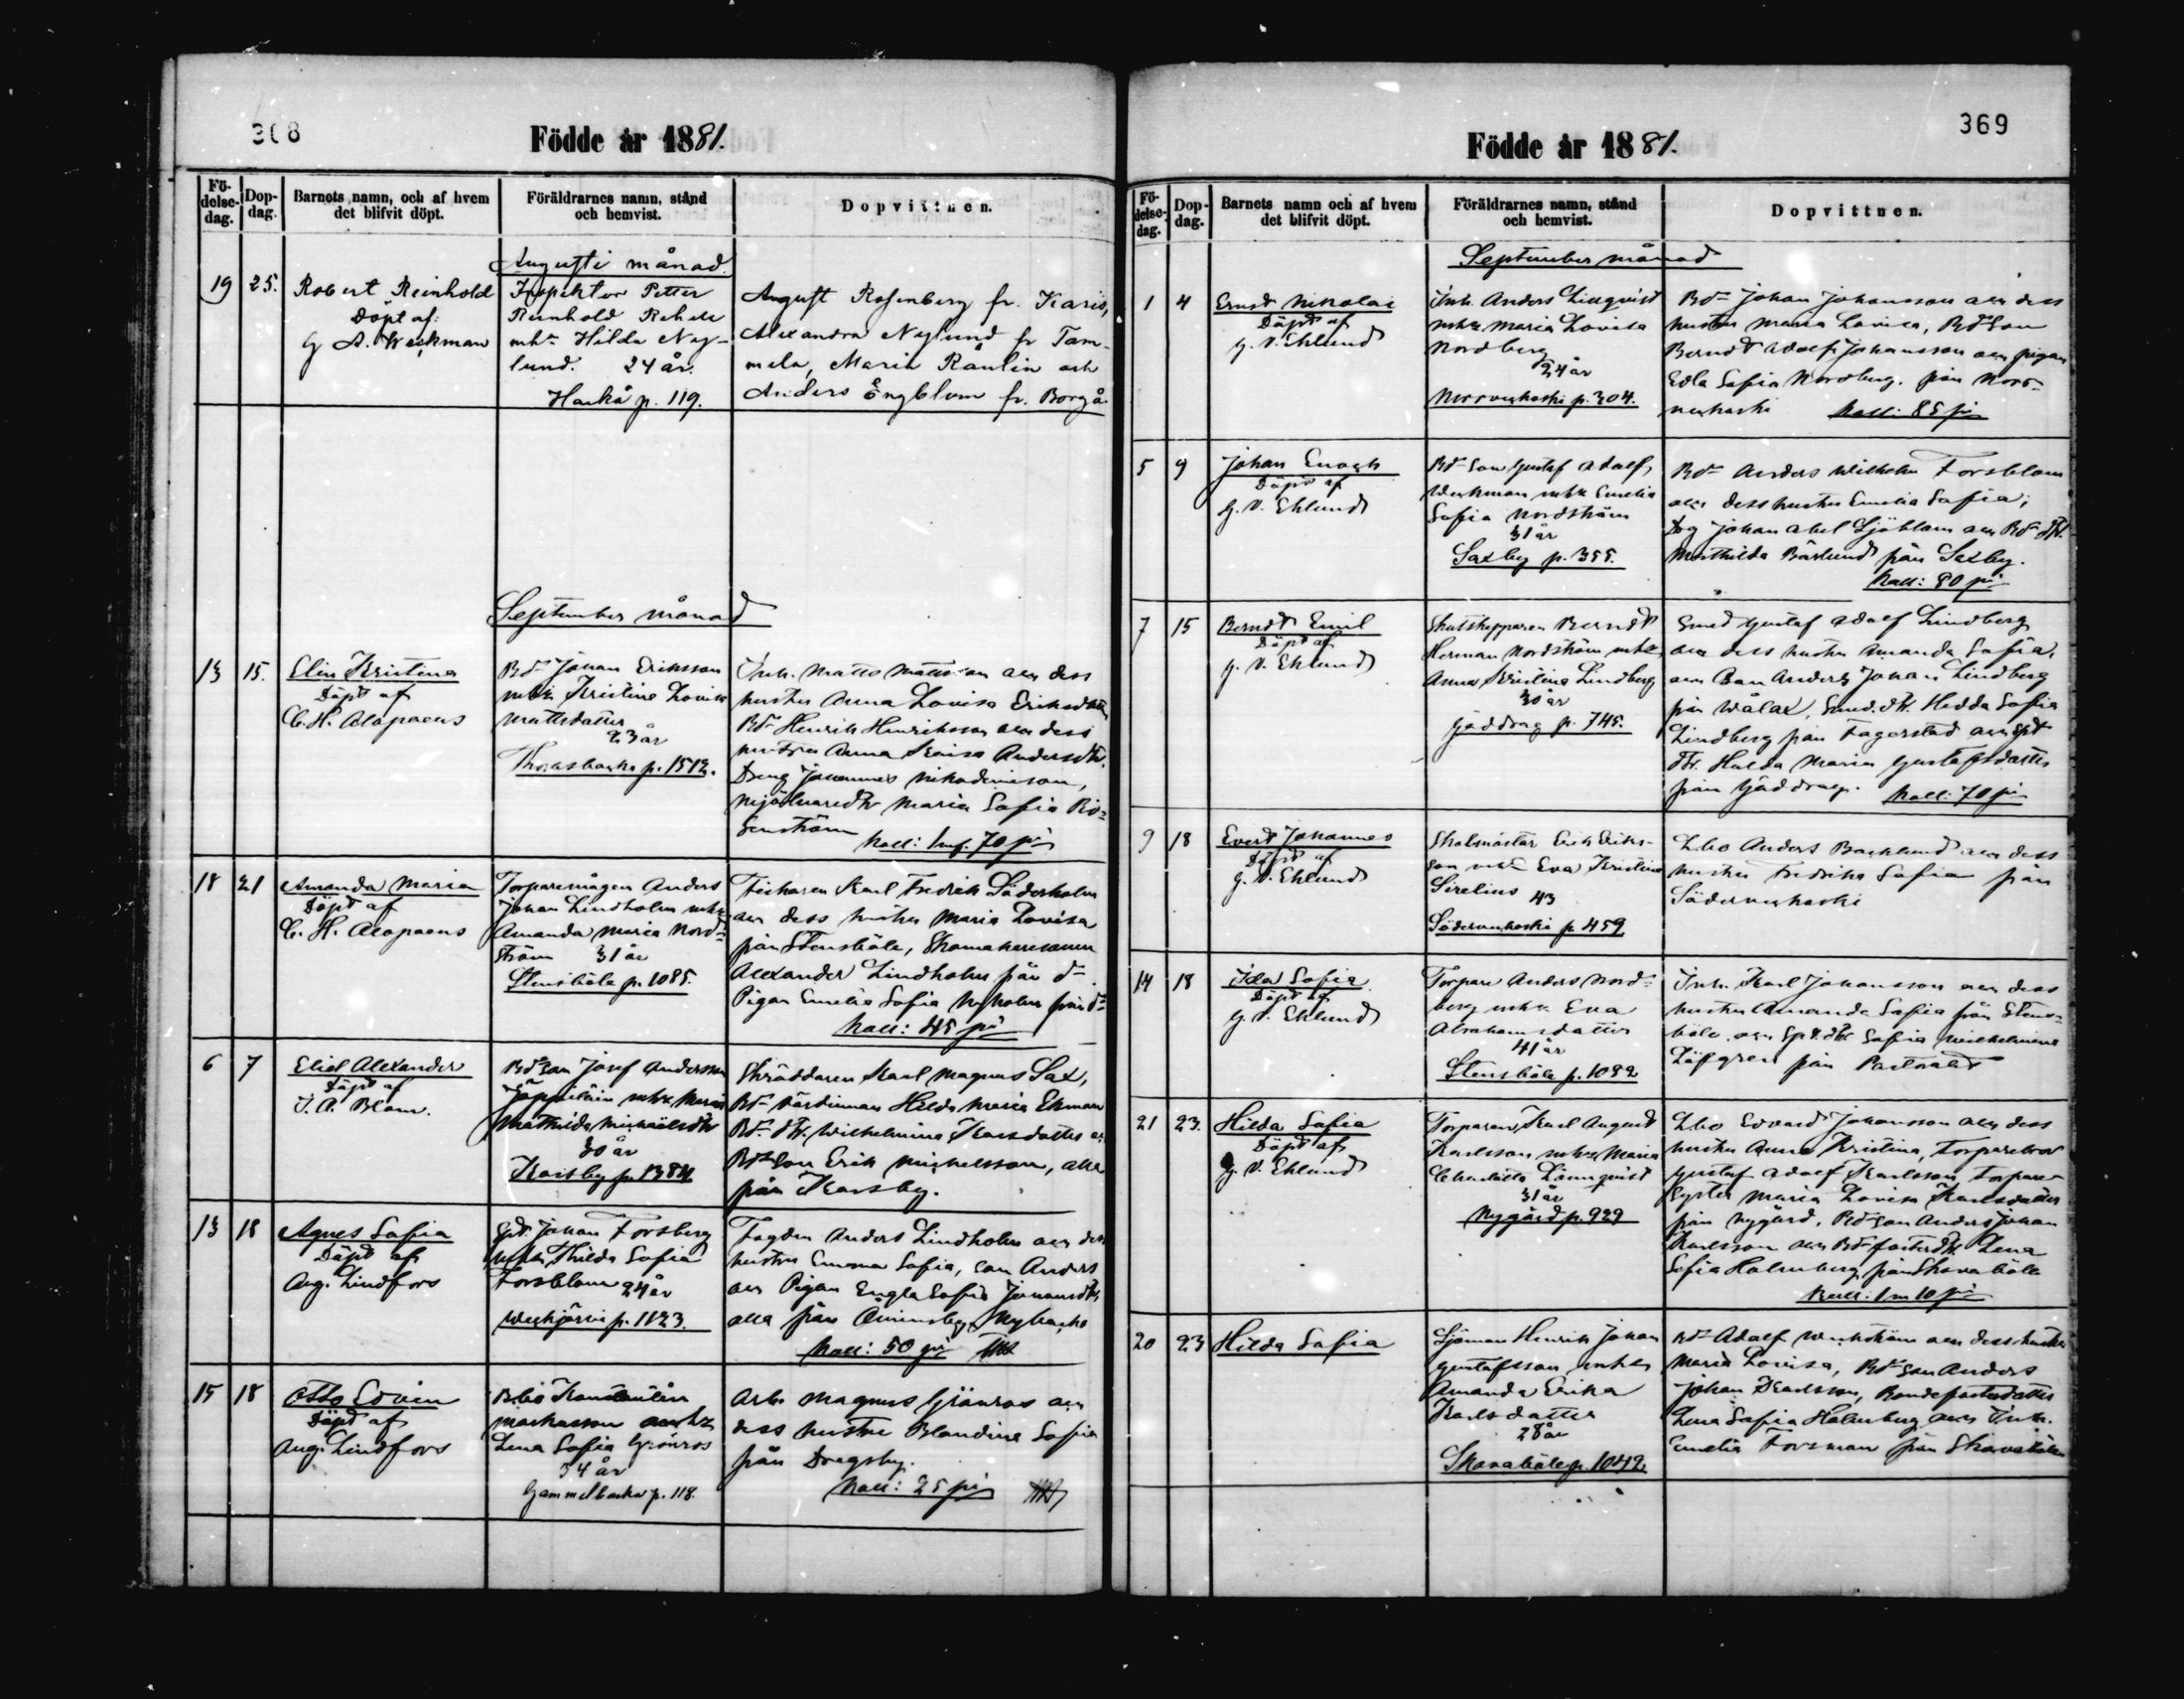 308
Födde år 1881.
Fö-
delse-
dag.
Dop-
dag.
Barnets namn, och af hvem
det blifvit döpt.
Föräldrarnes namn, stånd
och hemvist.
Dopvittnen.
Augusti månad.
19 25.
Robert Reinhold
Döpt af:
G A. Weckman
Inspektor Petter
Reinhold
mh: Hilda Ny-
lund. 24 år.
p. 119.
August Rosenberg fr. Karis,
Alexandra Nylund fr Tam-
mela, Maria och
Anders Engblom fr. Borgå
September månad
13 15.
Elin Kristina
Döpt af
C. H. Alopaeus
Bd Johan Eriksson
mhu Kristina Lovisa
Mattsdatter
23 år
p. 1512.
Inh. Matts Mattsson och dess
hustru Anna Lovisa
Bd Henrik Henriksson och dess
hustru Anna Andersdtr.
Dreng Johannes
Maria Sofia Ro-
senström
Koll: 1 mf. 70 pi
18 21
Amanda Maria
Döpt af
C. H. Alopaeus
Torparemågen Anders
Johan Lindholm mhu
Amanda Maria Nord-
ström 31 år
Stensböle p. 1085.
Fiskaren Karl Fredrik Söderholm
och dess hustru Maria Lovisa
från Stensböle,
Alexander Lindholm från do
Pigan Emelie Sofia från do
Koll: 45 pi
6 7
Eliel Alexander
Döpt af
J. A. Blom.
Bdson Josef Andersson
mhu Maria
Mathilda Michaelsdtr
30 år
Karsby p. 1384
Skräddaren Karl Magnus Sax,
Bd Hilda Maria Ekman
Bd dtr. Wilhelmina Karlsdatter o
Bdson Erik Michelsson, alla
från Karsby.
13 18
Agnes Sofia
Döpt af
Aug. Lindfors
Johan Forsberg
mhu Hilda Sofia
Forsblom 24 år
Weckjärvi p. 1123.
Fogden Anders Lindholm och dess
hustru Emma Sofia, son Anders
och Pigan Engla Sofia Johansdtr,
alla från
Koll: 50 pi
15 18
Otto Edvin
Döpt af
Aug. Lindfors
Konstantin
Markusson mhu
Lena Sofia Grönros
34 år
Gammelbacka p. 118.
Arb. Magnus Grönroos och
dess hustru Blandina Sofia
från Dragsby.
Koll: 25 pi
369
Födde år 1881.
Fö-
delse-
dag.
Dop-
dag.
Barnets namn och af hvem
det blifvit döpt.
Föräldrarnes namn, stånd
och hemvist.
Dopvittnen.
September månad
1 4
Ernst Nikolai
Döpt af
G. V. Eklund
Inh. Anders Lindqvist
mhu Maria Lovisa
Nordberg
24 år
Norrveckoski p. 304.
Bd Johan Johansson och dess
hustru Maria Lovisa, Bdson
Berndt Adolf Johansson och pigan
Edla Sofia Nordberg. från Norr-
veckoski Koll: 85 pi
5 9
Johan Enoch
Döpt af
G. V. Eklund
Bdson Gustaf Adolf
Weckman mhu Emelia
Sofia Nordström
31 år
Saxby p. 355.
Bd Anders Wilhelm Forsblom
och dess hustru Emelia Sofia;
Johan Abel Sjöblom och Bd dtr.
Mathilda från Saxby.
Koll: 90 pi
7 15
Berndt Emil
Döpt af
G. V. Eklund
Skutskepparen Berndt
Herman Nordström mhu
Anna Kristina Lindberg
30 år
Gäddrag p. 745.
Smed Gustaf Adolf Lindberg
och dess hustru Amanda Sofia,
och Bon Anders Johan Lindberg
från Wålax, Smed.dtr. Hedda Sofia
Lindberg från Fagersta och
dtr. Hulda Maria Gustafsdatter
från Gäddrag. Koll: 70 pi
9 18
Evert Johannes
Döpt af
G. V. Eklund
Skolmästar Erik Eriks-
son mhu Eva Kristina
Sirelius 43
Söderveckoski p 459
Lbo Anders Backlund och dess
hustru Fredrika Sofia från
Söderveckoski
14 18
Ida Sofia
Döpt af
G. V. Eklund
Torpare Anders Nord-
berg mhu Eva
Abrahamsdatter
41 år
Stensböle p. 1092
Inh. Karl Johansson och dess
hustru Amanda Sofia från Stens-
böle. och dtr Sofia Wilhelmina
Löfgren från
21 23.
Hilda Sofia
Döpt af
G. V. Eklund
Torparen Karl August
Karlsson mhu Maria
Charlotta Lönnqvist
31 år
Nygård p. 929
Lbo Edvard Johansson och dess
hustru Anna Kristina, Torparebror
Gustaf Adolf Karlsson, torpare-
syster Maria Lovisa Karlsdatter
från Nygård, Bdson Anders Johan
Karlsson och Bd fosterdtr. Lena
Sofia Holmberg från Skavaböle
Koll: 1 m 10 pi
20 23
Hilda Sofia
Sjöman Henrik Johan
Gustafsson mhu
Amanda Erika
Karlsdatter
28 år
Skavaböle p. 1042
Bd Adolf Wickström och dess hustru
Maria Lovisa, Bdson Anders
Johan Karlsson, Bondefosterdatter
Lena Sofia Holmberg och Inh.
Emelia Forsman från Skavaböle